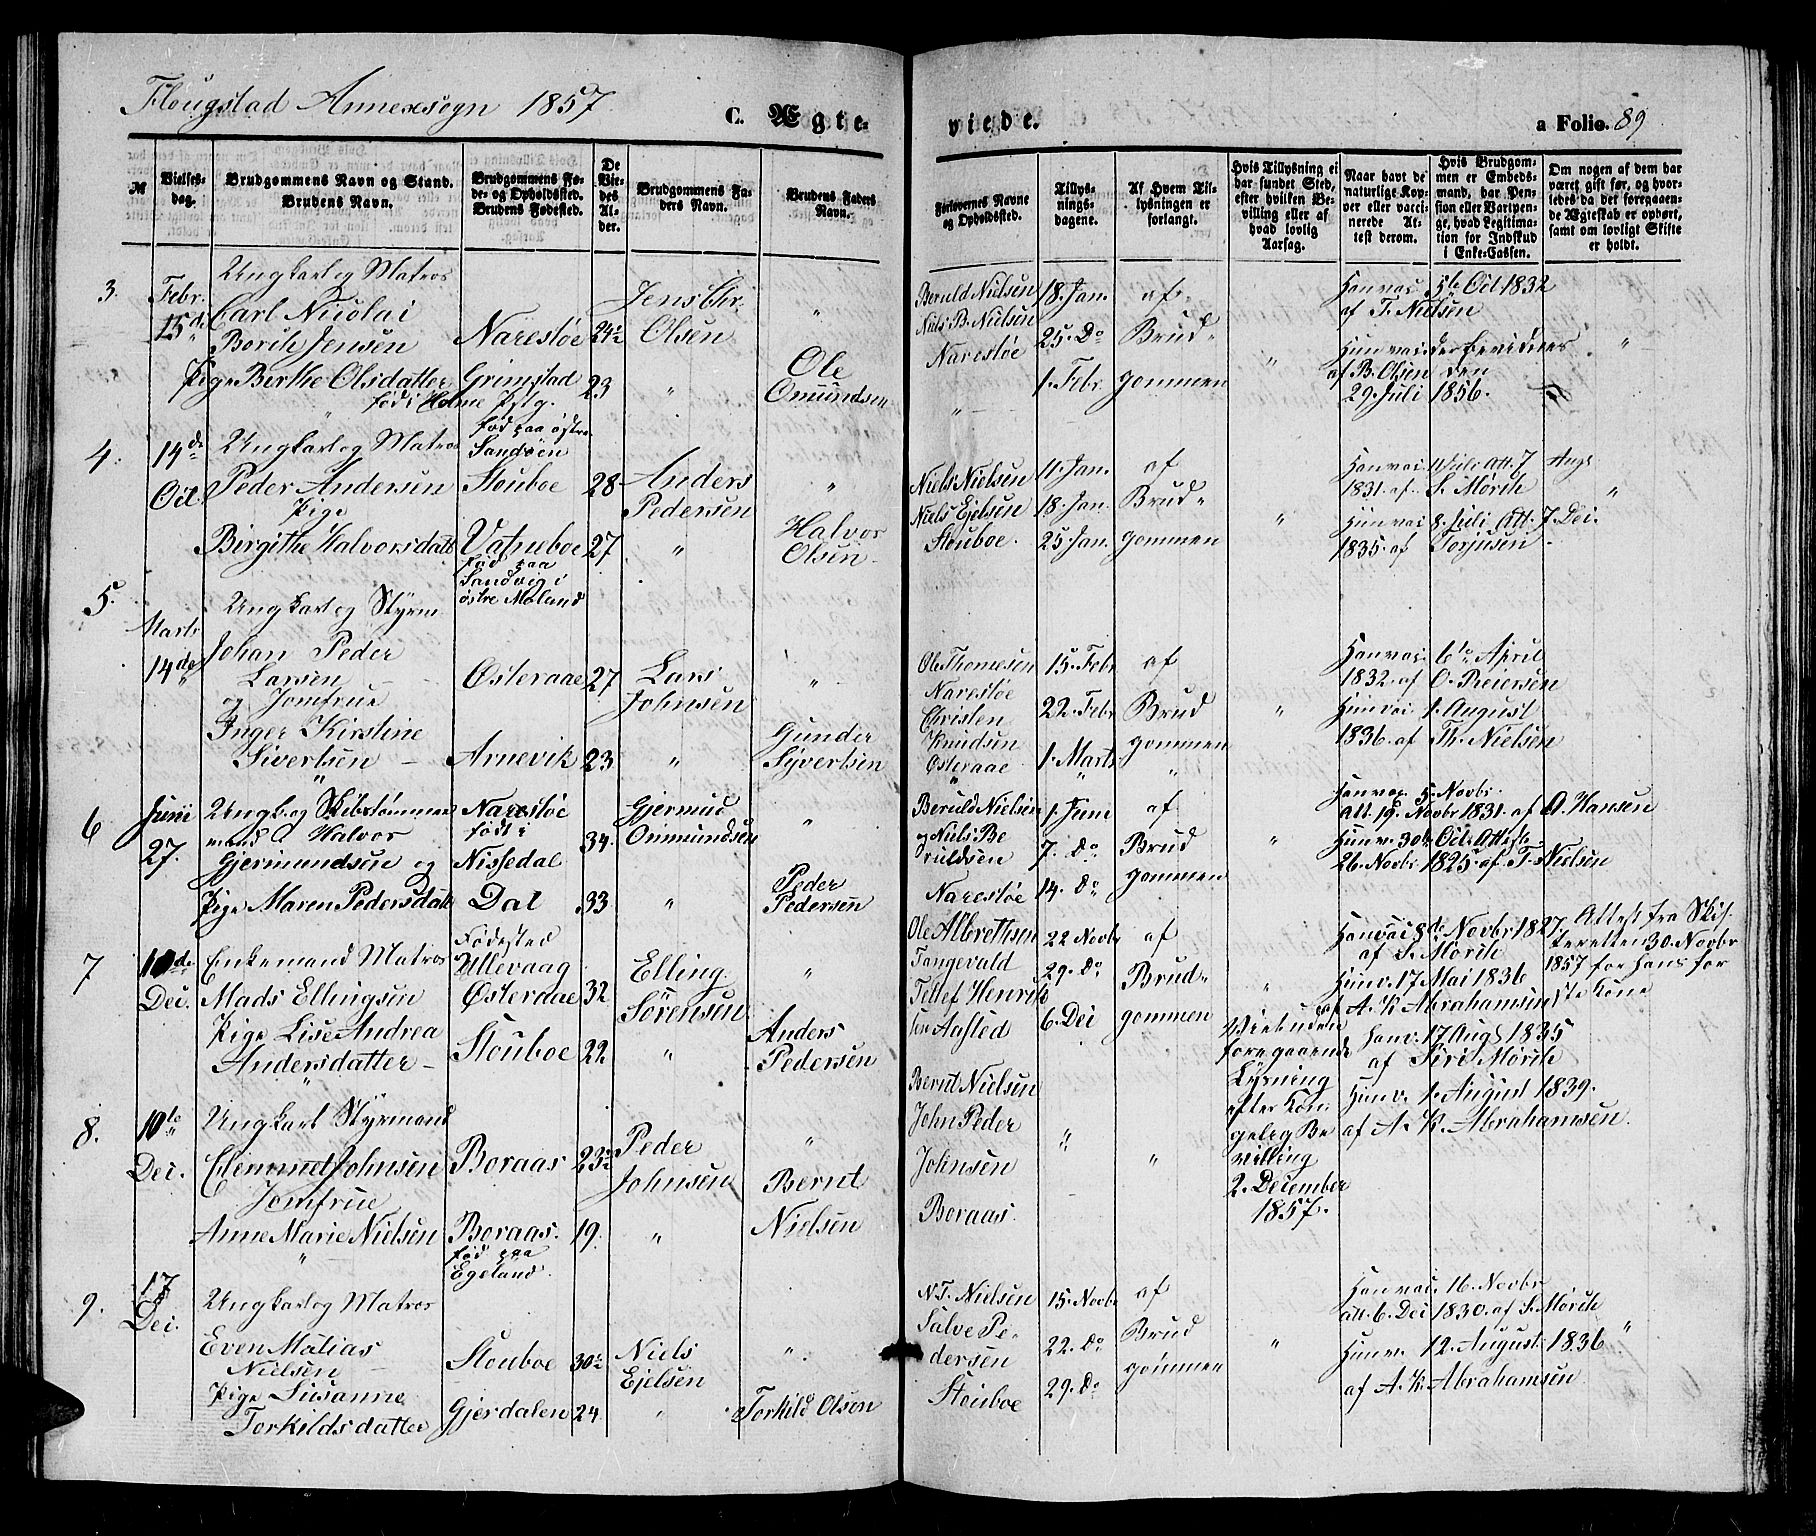 Flougstad Annexsogn 1857
C. Ægte-
viede.
a Folio. 89
№
Vielses-
dag.
Brudgommens Navn og Stand.
Brudens Navn.
Brudgommens Fø-
de- og Opholdssted.
Brudens Fødested.
De
Vie-
des
Al-
der.
Brudgommens Fa-
ders Navn.
Brudens Faders
Navn.
Forlovernes Navne
og Opholdssted.
Tillys-
nings-
dagene.
Af Hvem Til-
lysningen er
forlangt.
Hvis Tillysning ei
har fundet Sted,
efter hvilken Be-
villing eller af
hvad lovlig
Aarsag.
Naar havt de
naturlige Kop-
per eller vacci-
nerede At-
test derom.
Hvis Brudgom-
men er Embeds-
mand, har Pen-
sion eller Vartpen-
ge, hvad Legitima-
tion for Indskud
i Enke-Cassen.
Om nogen af dem har
været gift før, og hvor-
ledes da det foregaaen-
de Ægteskab er ophørt,
samt om lovligt Skifte
er holdt.
3.
Febr.
15de
Ungkarl og Matros
Carl Nicolai
Borith Jensen
Pige Birthe Olsdatter
Narestøe
Grimstad
født i Holme Pstg.
24½
23
Jens Chr.
Olsen
"
"
Ole
Omundsen
Beruld Nielsen
Niels B. Nielsen
Narestøe
"
18. Jan.
25. Do
1. Febr.
af
Brud-
gommen
"
Han vac. 5te Oct 1832
af T. Nielsen
Hun vac.
af B. Olsen den
29. Juli 1856.
"
4.
14de
Oct.
Ungkarl og Matros
Peder Andersen
Pige
Birgithe Halvorsdatt
fød paa østre
Sandøen
Stouboe
Vatneboe
28
27
Anders
Pedersen
"
"
Halvor
Olsen
Niels Nielsen
Niels Ejelsen
Stouboe.
11. Jan.
18. Jan.
25. Jan.
af
Brud-
gommen
"
Han vac. 1 Juli Att. 7 Aug.
1831. af S. Mørch
Hun vac. 8. Juli Att. 7. Dec.
1835. af Torjusen
"
5.
Marts
14de
Ungkarl og Styrm
Johan Peder
Larsen
og Jomfrue
Inger Kirstine
Sivertsen
"
fød paa
Sandvig i
østre Moland
Østeraae
Arnevik
27
23
Lars
Johnsen
"
"
Gunder
Syvertsen
Ole Thomesen
Narestøe
Christen
Knudsen
Østeraae
"
15. Febr
22. Febr
1. Marts
"
af
Brud
gommen
"
"
Han vac. 6te April
1832. af O. Reiersen
Hun vac. 1. August
1836. af Th. Nielsen
6
Junii
27.
Ungk. og Skibstømmer
mand Halvor
Gjermundsen og
Pige Maren Pedersdatt
Narestøe
født i
Nissedal
Dal
34.
33
Gjermud
Onmundsen
"
"
Peder
Pedersen
Beruld Nielsen
og Niels Be
ruldsen
Narestøe
1. Juni
7. do
14. Do
af
Brud
gommen
"
Han vac. 5. Novbr.
att. 19. Novbr 1831. af O. Hansen
Hun v. 30te Oct. Att
26. Novbr 1825. af T. Nielsen
7
10de
Dec.
Enkemand Matros
Mads Ellingsen
Pige Lise Andrea
Andersdatter
Fødested
Ullevaag
Østeraae
Stouboe
32
22
Elling
Sörensen
"
"
Anders
Pedersen
Ole Albrethsen
Tangevald
Tellef Henrik
sen Aasted
22 Novbr
29. Do
6. Dec
af
Brud-
gommen
"
Han vac. 8de Novbr 1827.
af S. Mörch
Hun v. 17 Mai 1836
af A. K. Abrahamsen
Attest fra Skif
teretten 30. Novbr
1857 for hans for
ste Kone
8.
10de
Dec.
Ungkarl Styrmand
Clemmet Johnsen
Jomfrue
Anne Marie Nielsen
"
Boraas
Boraas.
fød paa
Egeland.
23½
19.
Peder
Johnsen
"
"
Bernt
Nielsen
Bernt Nielsen
John Peder
Johnsen
Boraas.
"
"
Viet uden
foregaaende
Lysning
efter Kon
gelig Be
villing
2. December
1857.
Han v. 17 Aug 1835
af Siri Mörch
Hun v. 1. August 1839.
af A. K. Abrahamsen.
9.
17
Dec.
Ungkarl og Matros
Even Matias
Nielsen
Pige Susanne
Torkildsdatter
Stouboe
Gjerdalen
30½
24.
Niels
Ejelsen
"
"
Torkild Olson
N. T. Nielsen
Salve Pe-
dersen
Stouboe
15. Novbr
22. Do
29. Do
af
Brud
gommen
"
Han vac. 16. Novbr
att. 6. Dec 1830. af S. Mörch
Hun v. 12. August 1836
af A. K. Abrahamsen.
"